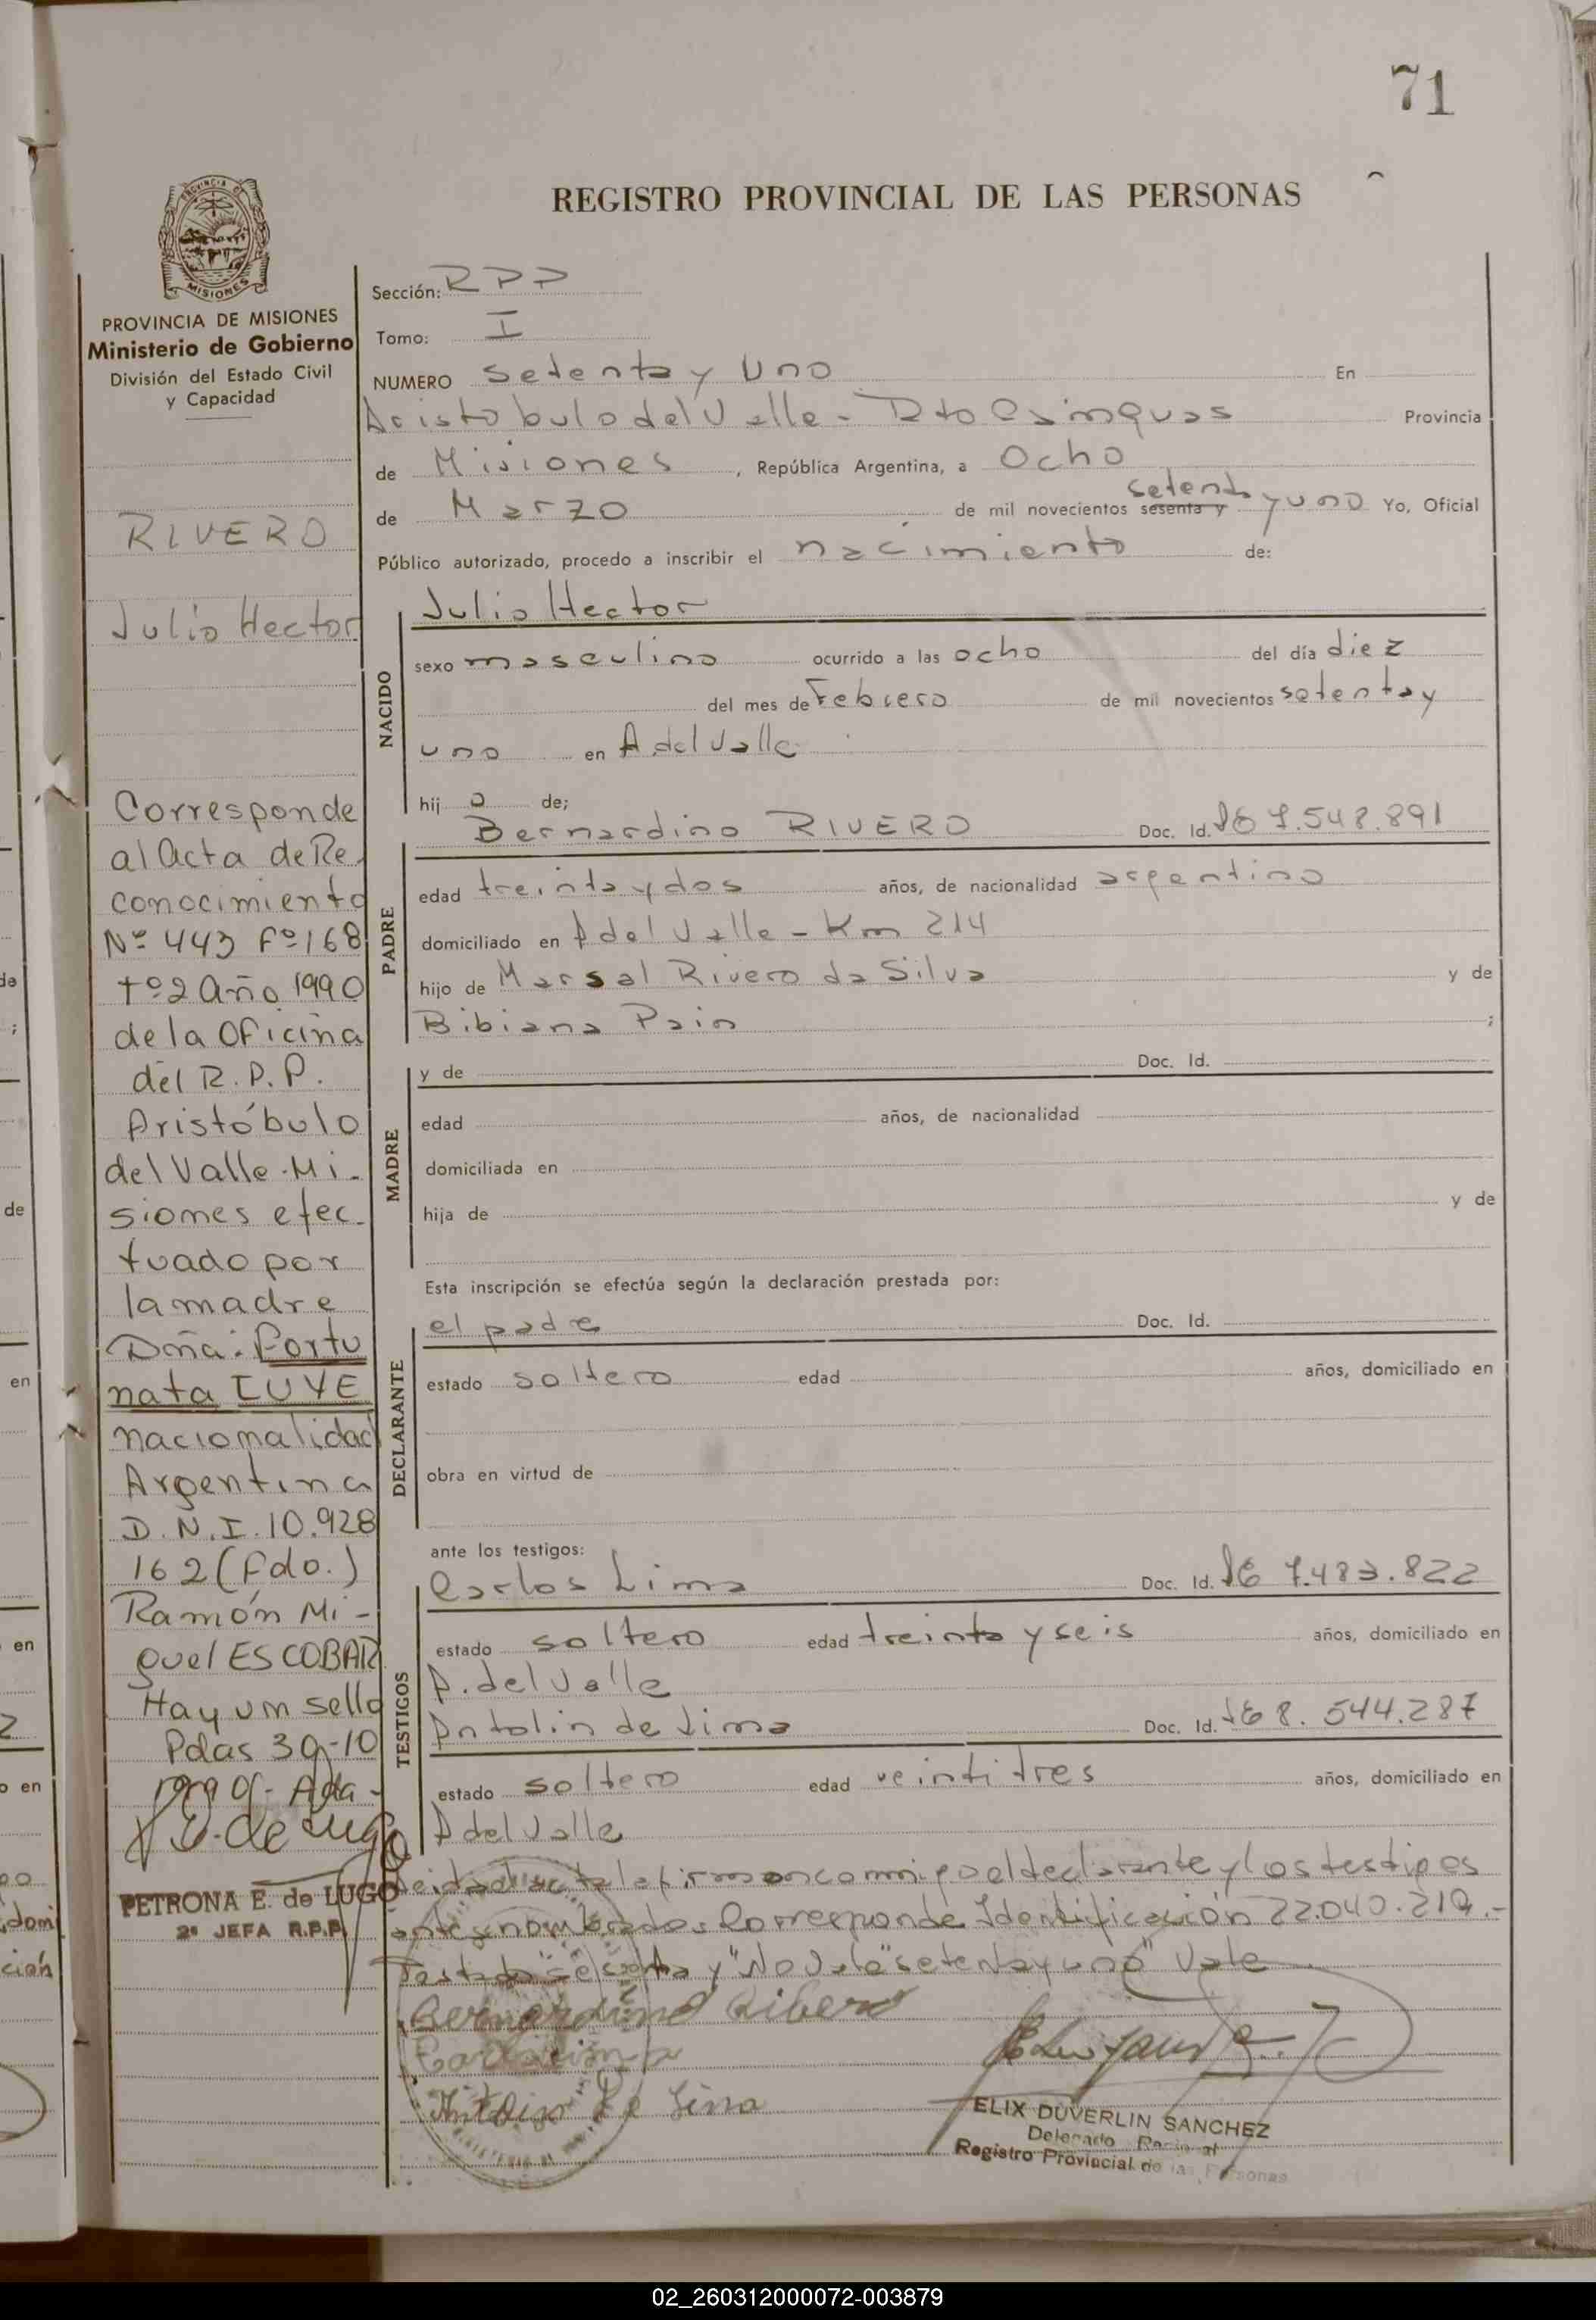 71
REGISTRO PROVINCIAL DE LAS PERSONAS
PROVINCIA DE MISIONES
Ministerio de Gobierno
División del Estado Civil
y Capacidad
RIVERO
Julio Hector
Corresponde
al Acta de Re
conocimiento
Nº 443 Fº 168
tº 2 Año 1990
de la Oficina
del R.P.P.
Aristóbulo
del Valle-Mi-
siones efec-
tuado por
la madre
Dña: Fortu
nata CUYE
nacionalidad
Argentina
D.N.I. 10.928
162 (Fdo.)
Ramón Mi-
guel ESCOBAR
Hay un sello
Pdas 30-10
PETRONA E. de LUGO
2ª JEFA R.P.P.
Sección: RPP
Tomo: I
NUMERO setenta y uno En
Aristobulo del Valle - Dto Cainguas Provincia
de Misiones, República Argentina, a Ocho
de Marzo de mil novecientos sesenta y setenta y uno Yo, Oficial
Público autorizado, procedo a inscribir el nacimiento de:
NACIDO
Julio Hector
sexo masculino ocurrido a las ocho del día diez
del mes de Febrero de mil novecientos setenta y
uno en A del Valle
hij o de;
PADRE
Bernardino RIVERO Doc. Id. 7.548.891
edad treinta y dos años, de nacionalidad argentino
domiciliado en A del Valle - Km 214
hijo de Marsal Rivero da Silva y de
Bibiana Pain ;
MADRE
y de Doc. Id.
edad años, de nacionalidad
domiciliada en
hija de y de
Esta inscripción se efectúa según la declaración prestada por:
DECLARANTE
el padre Doc. Id.
estado soltero edad años, domiciliado en
obra en virtud de
ante los testigos:
TESTIGOS
Carlos Lima Doc. Id. 7.483.822
estado soltero edad treinta y seis años, domiciliado en
A. del Valle
Antolin de Lima Doc. Id. 8.544.287
estado soltero edad veintitres años, domiciliado en
A del Valle
Leida el acta la firman conmigo el declarante y los testigos
antes nombrados Corresponde Identificación 22.040.219.-
Testado "sesenta y" No Vale "setenta y uno" Vale
Bernardino Ribero
Carlos Lima
de Lima
ELIX DUVERLIN SANCHEZ
Delegado
Registro Provincial de las Personas
02_260312000072-003879